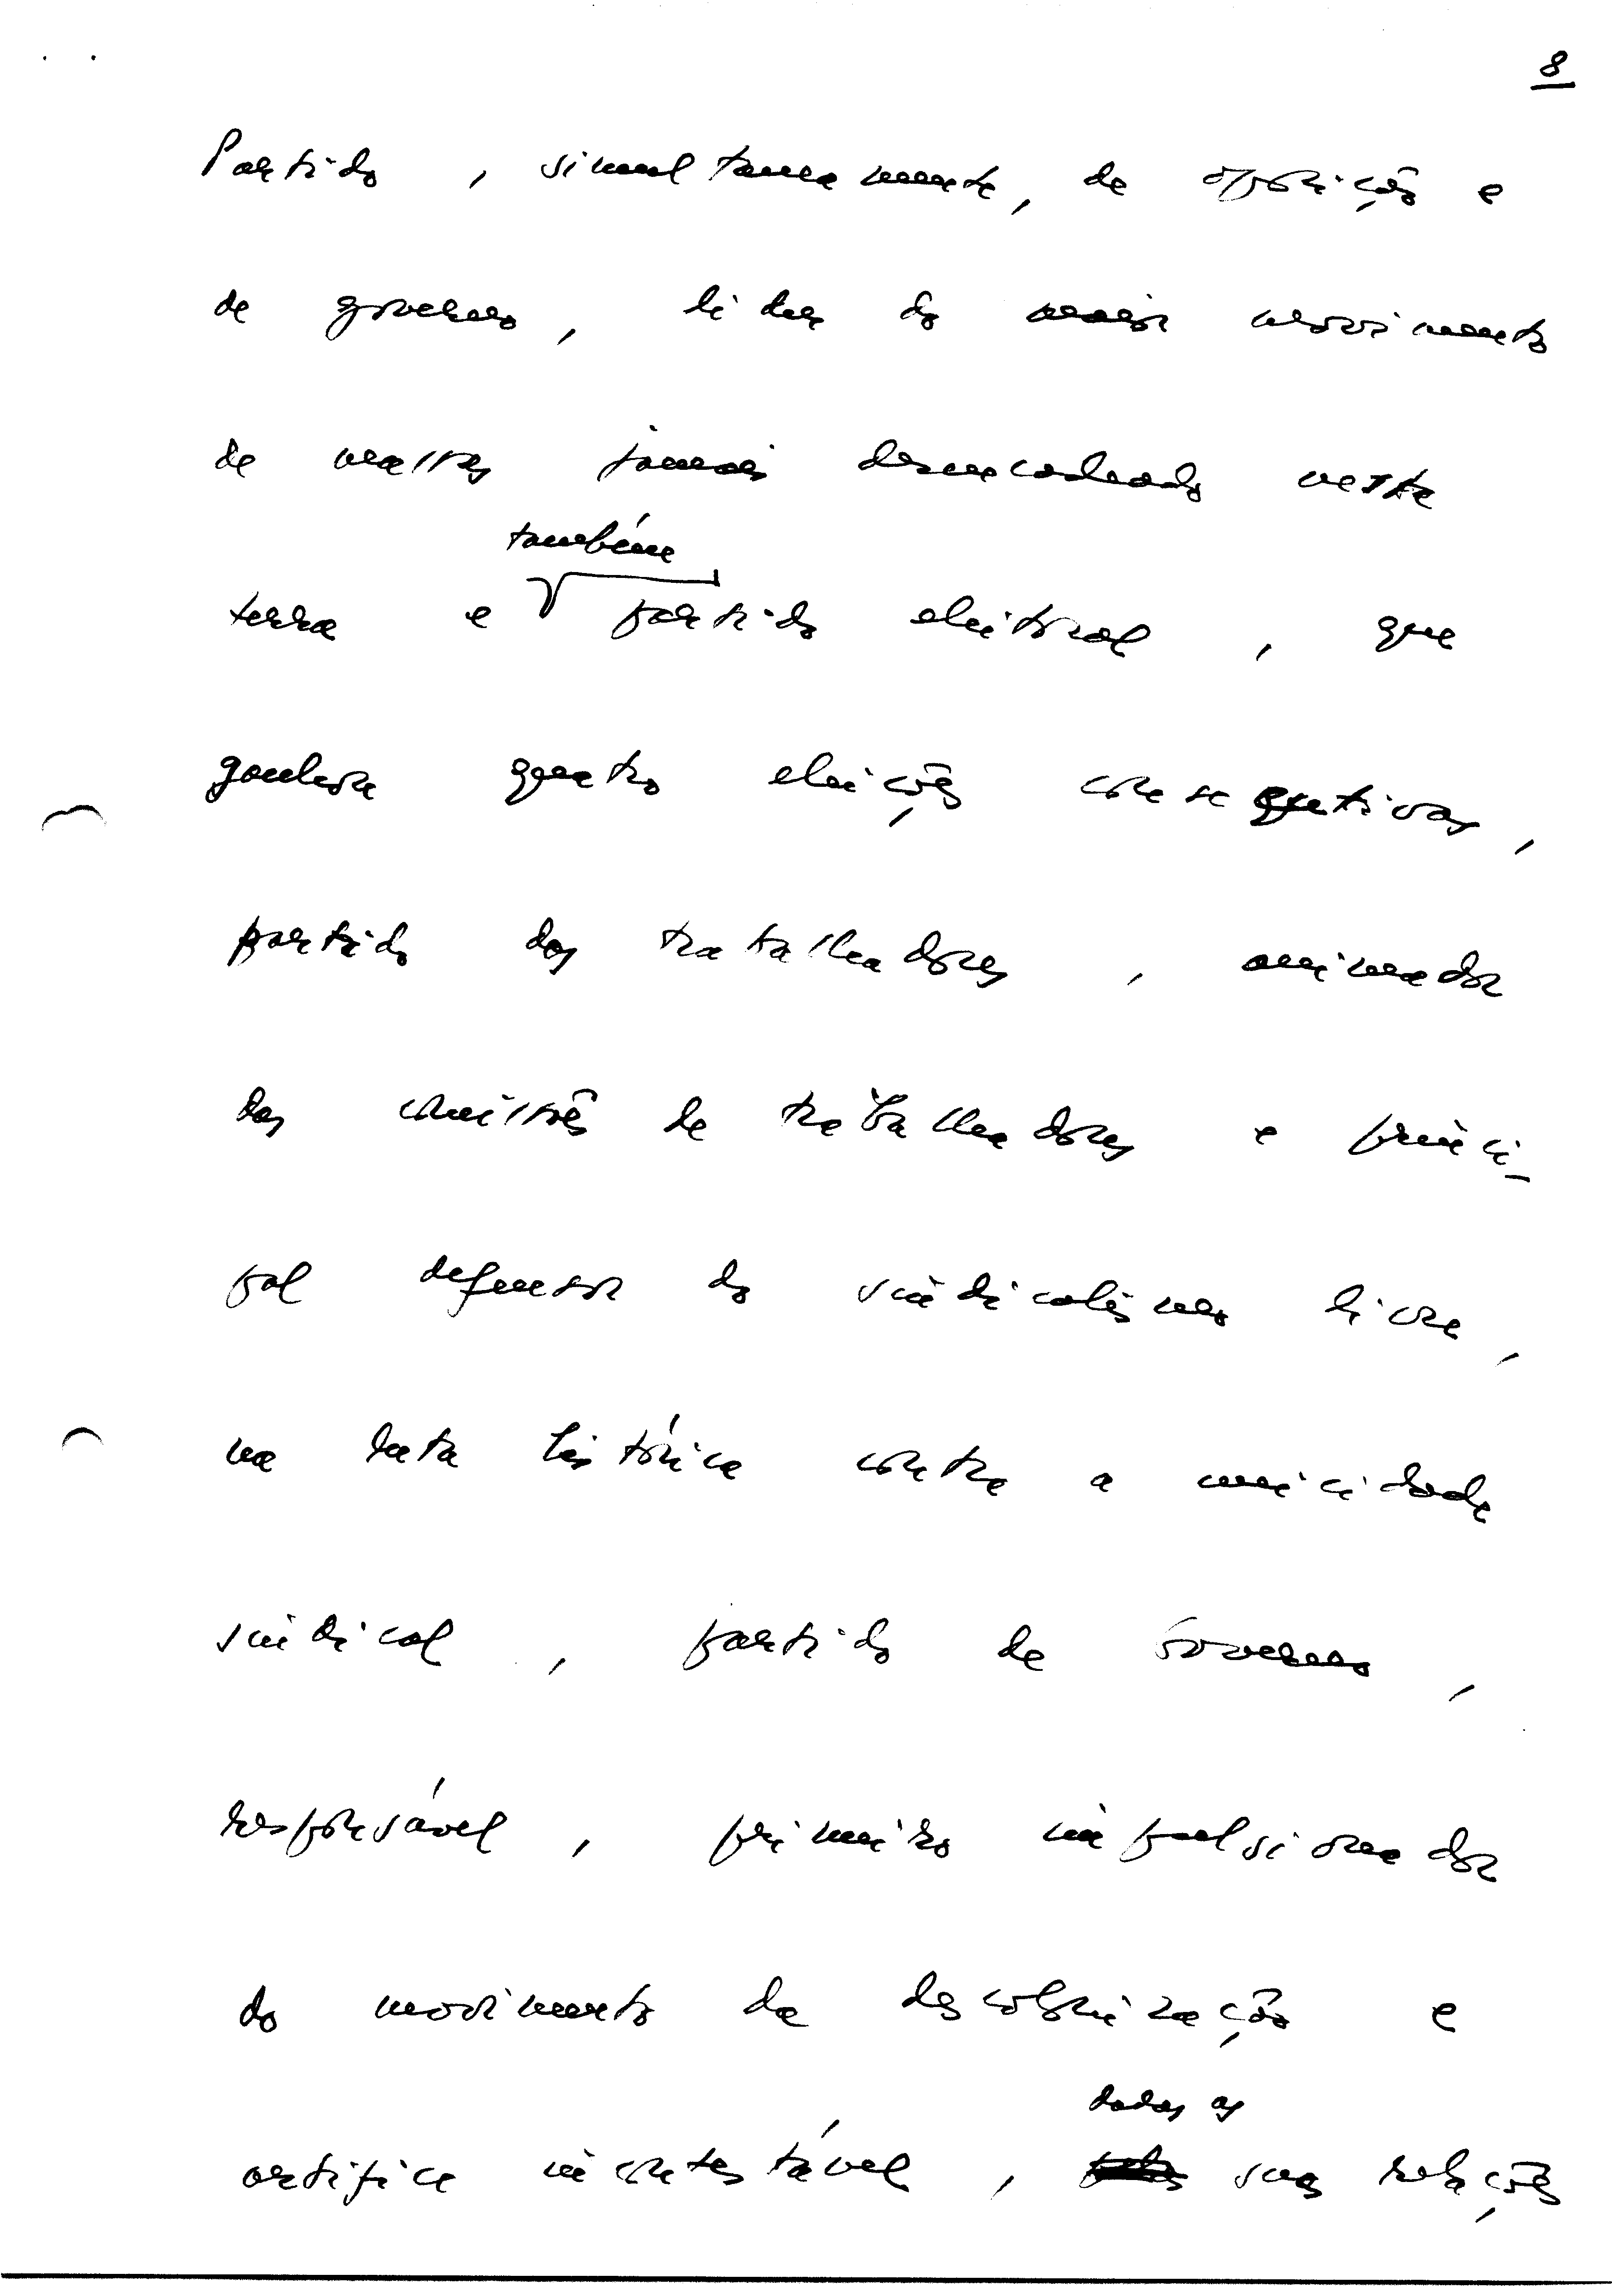 8
Partido, simultaneamente, de oposição e
de governo, lider do maior movimento
de massas jamais desencadeado nesta
também
terra e partido eleitoral, que
ganhou quatro eleições consequtivas,
partido dos trabalhadores, animador
das comissões de trabalhadores e princi-
pal defensor do sindicalismo livre,
na luta histórica contra a unicidade
sindical, partido de Governo,
responsável, primeiro impulsionador
do movimento da descolonização e
dadas as
artífice incontestável, suas relações